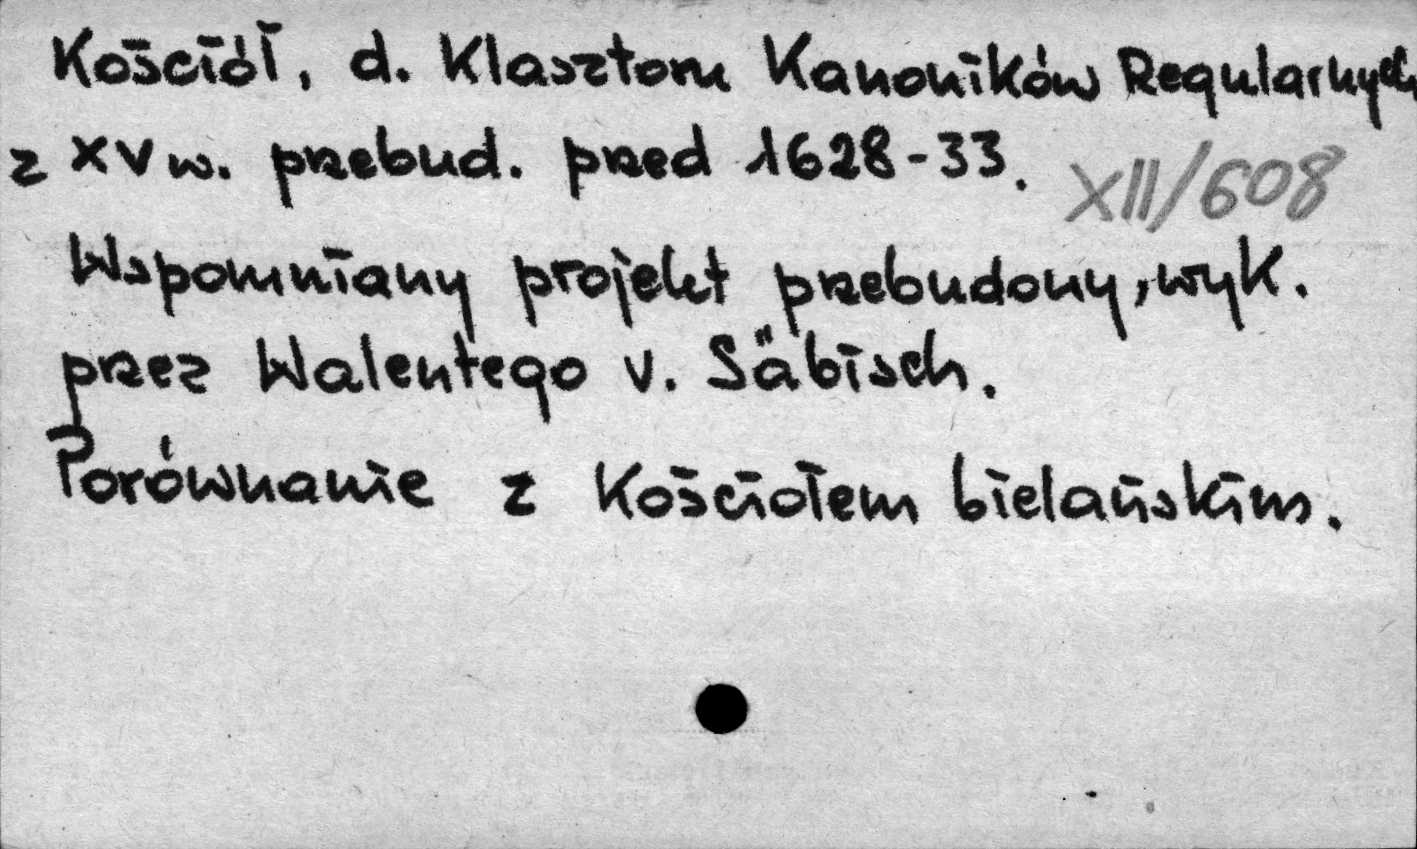 Kościół, d. Klasztoru Kanoników Regularnych
z XV w. przebud. przed 1628-33.
XII/608
Wspomniany projekt przebudowy, wyk.
przez Walentego v. Säbisch.
Porównanie z Kościołem bielańskim.